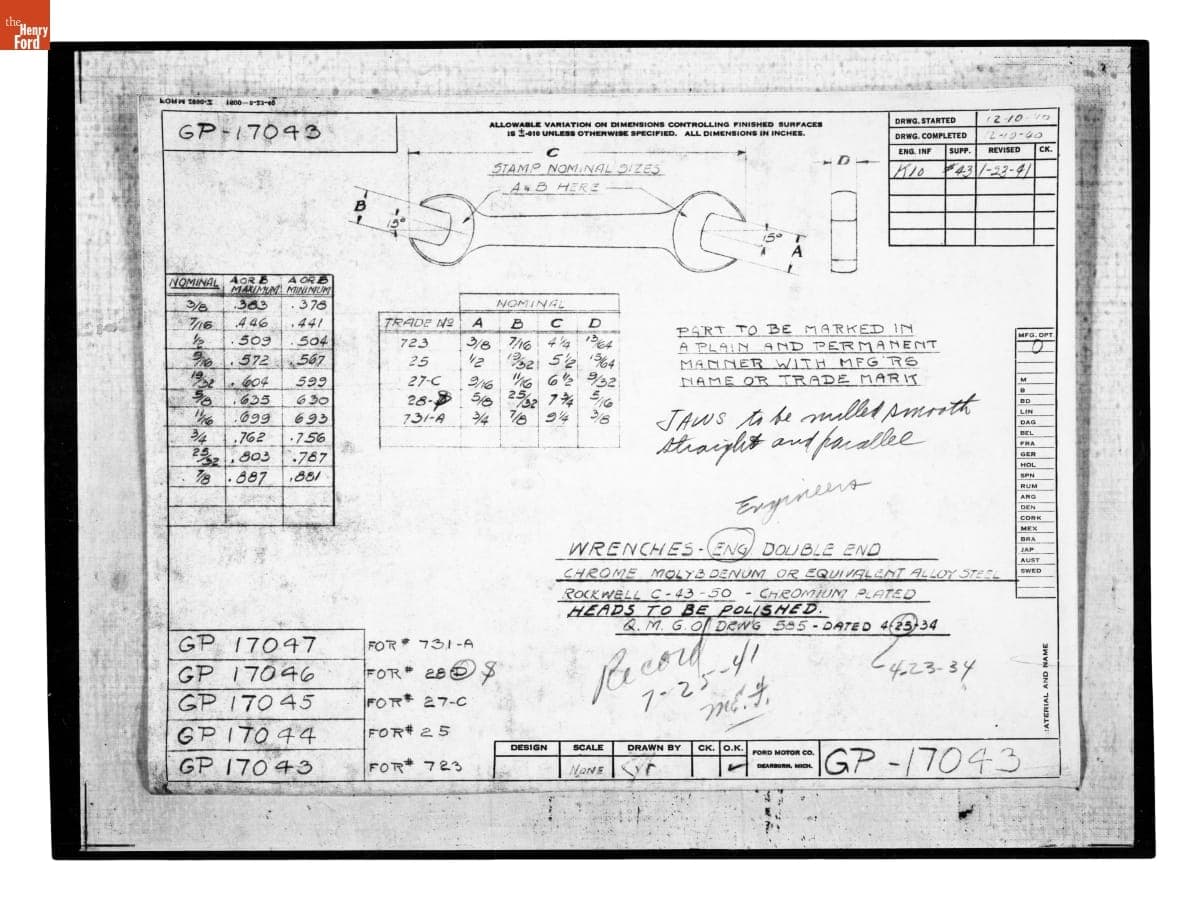 the
Henry
Ford
FORM 2800-X 1800-5-23-40
GP-17043
ALLOWABLE VARIATION ON DIMENSIONS CONTROLLING FINISHED SURFACES
IS ±.010 UNLESS OTHERWISE SPECIFIED. ALL DIMENSIONS IN INCHES.
DRWG. STARTED 12-10-40
DRWG. COMPLETED 12-10-40
ENG. INF SUPP. REVISED CK.
K10 #43 1-23-41
C
STAMP NOMINAL SIZES
A & B HERE
D
B
15°
15°
A
NOMINAL A OR B MAXIMUM A OR B MINIMUM
3/8 .383 .378
7/16 .446 .441
1/2 .509 .504
9/16 .572 .567
19/32 .604 599
5/8 .635 630
11/16 .699 693
3/4 .762 .756
25/32 .803 .787
7/8 .887 .881
NOMINAL
TRADE No A B C D
723 3/8 7/16 4 1/4 13/64
25 1/2 19/32 5 1/2 15/64
27-C 9/16 11/16 6 1/2 9/32
28-S 5/8 25/32 7 3/4 5/16
731-A 3/4 7/8 9 1/4 3/8
PART TO BE MARKED IN
A PLAIN AND PERMANENT
MANNER WITH MFG'RS
NAME OR TRADE MARK
JAWS to be milled smooth
straight and parallel
Engineers
WRENCHES-ENG DOUBLE END
CHROME MOLYBDENUM OR EQUIVALENT ALLOY STEEL
ROCKWELL C-43-50 - CHROMIUM PLATED
HEADS TO BE POLISHED.
Q. M. G. O. DRWG 585-DATED 4-23-34
4-23-34
Record
7-25-41
MFG. OPT
O
M
B
BD
LIN
DAG
BEL
FRA
GER
HOL
SPN
RUM
ARG
DEN
CORK
MEX
BRA
JAP
AUST
SWED
MATERIAL AND NAME
GP 17047 FOR# 731-A
GP 17046 FOR# 28 S
GP 17045 FOR# 27-C
GP 17044 FOR# 25
GP 17043 FOR# 723
DESIGN SCALE DRAWN BY CK. O.K.
NONE
FORD MOTOR CO.
DEARBORN, MICH.
GP-17043